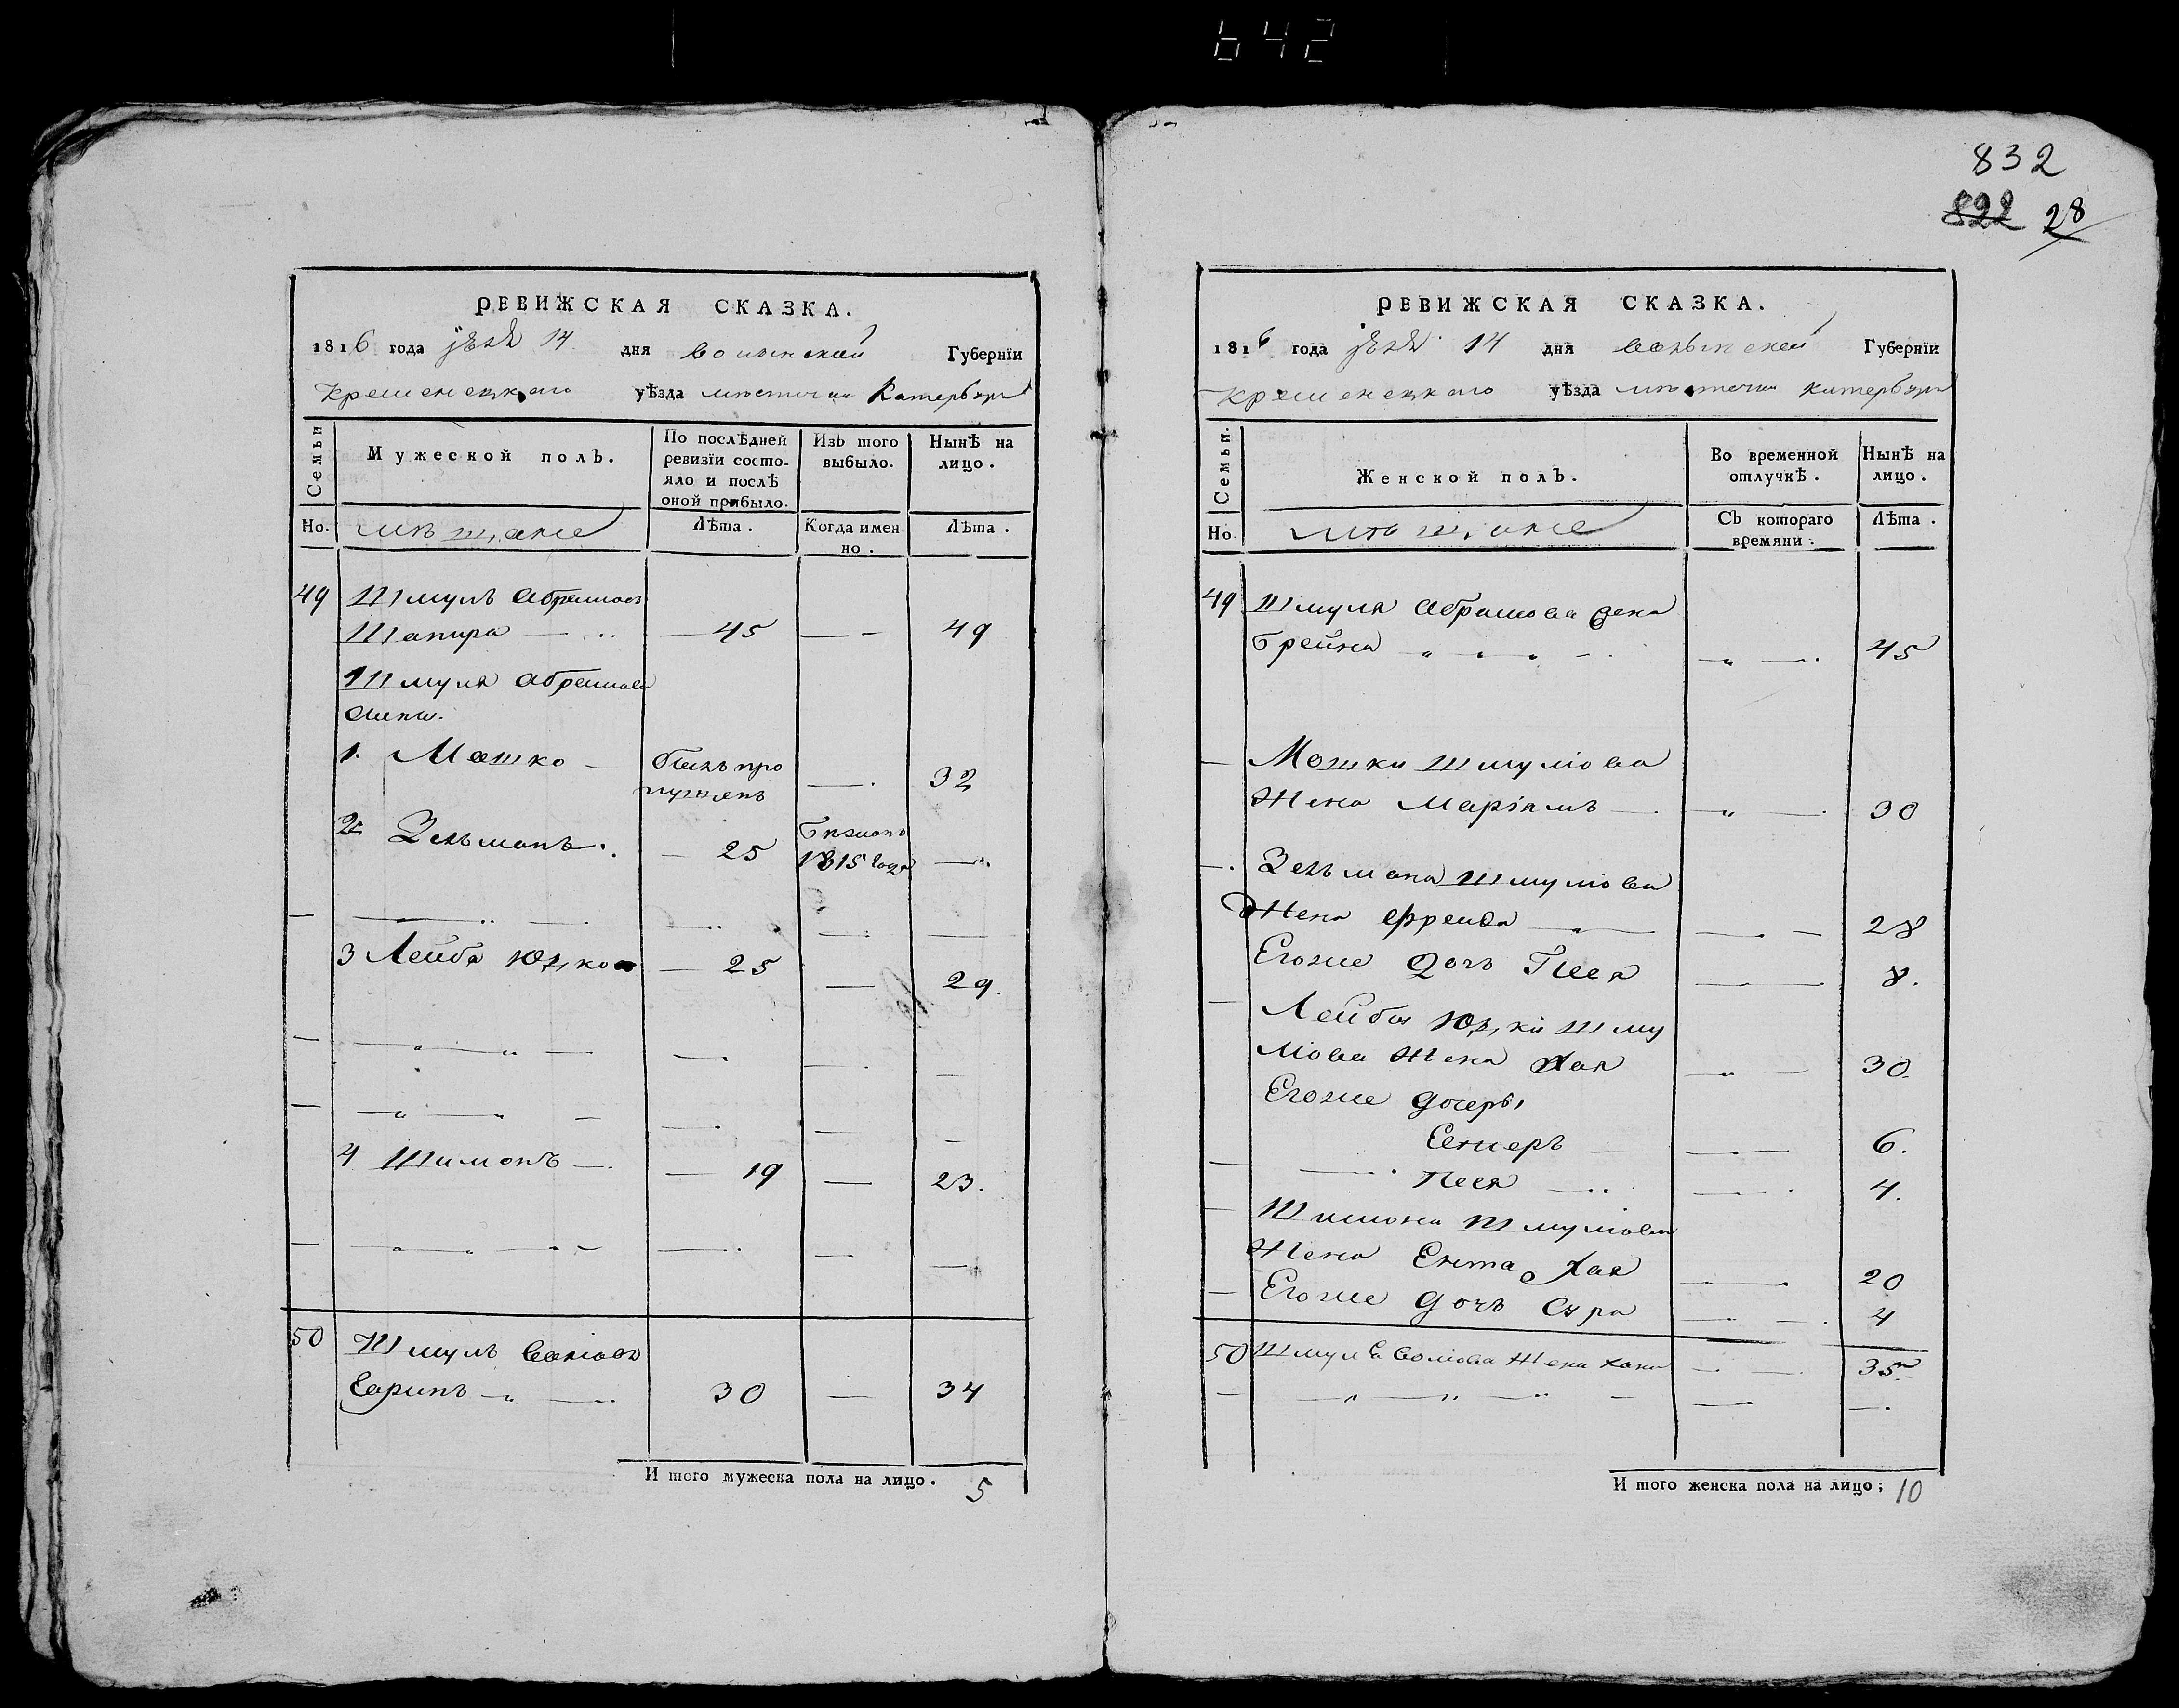 642
832
822 28
РЕВИЖСКАЯ СКАЗКА.
1816 года 14 дня волынской Губернїи
Кременецкаго уѣзда мѣстечка Катербург
Семьи
Мужеской полъ.
По послѣдней ревизїи состояло и послѣ оной прибыло.
Изъ того выбыло.
Нынѣ на лицо.
Но. мѣщане Лѣта. Когда именно. Лѣта.
49 Шмуль Абрамовъ
Шапира 45 — 49
Шмуля Абрамова
сыны.
1. Мошко былъ про
пущенъ — 32
2й Зельманъ. 25 Бѣжалъ
1815 года —
3 Лейба Юзко 25 — 29.
4 Шимонъ — 19 — 23.
50 Шмуль Волiовъ
30 — 34
И того мужеска пола на лицо. 5
РЕВИЖСКАЯ СКАЗКА.
1816 года 14 дня волынской Губернїи
Кременецкаго уѣзда мѣстечка Катербург
Семьи.
Женской полъ.
Во временной отлучкѣ.
Нынѣ на лицо.
Но. мѣщане Съ котораго времяни. Лѣта.
49 Шмуля Абрамова жена
Брейна 45
Мошки Шмулiова
Жена Марiямъ 30
Зельмана Шмулiова
Жена Фрейда 28
Егоже дочь Песя 8.
Лейбы Юзки Шму
лiова Жена Хая 30.
Егоже дочери
6.
Песя 4.
Шимона Шмулiова
Жена Ента Хая 20
Егоже дочь Сура 4
50 Шмуля Волiова Жена Хана 35
И того женска пола на лицо; 10